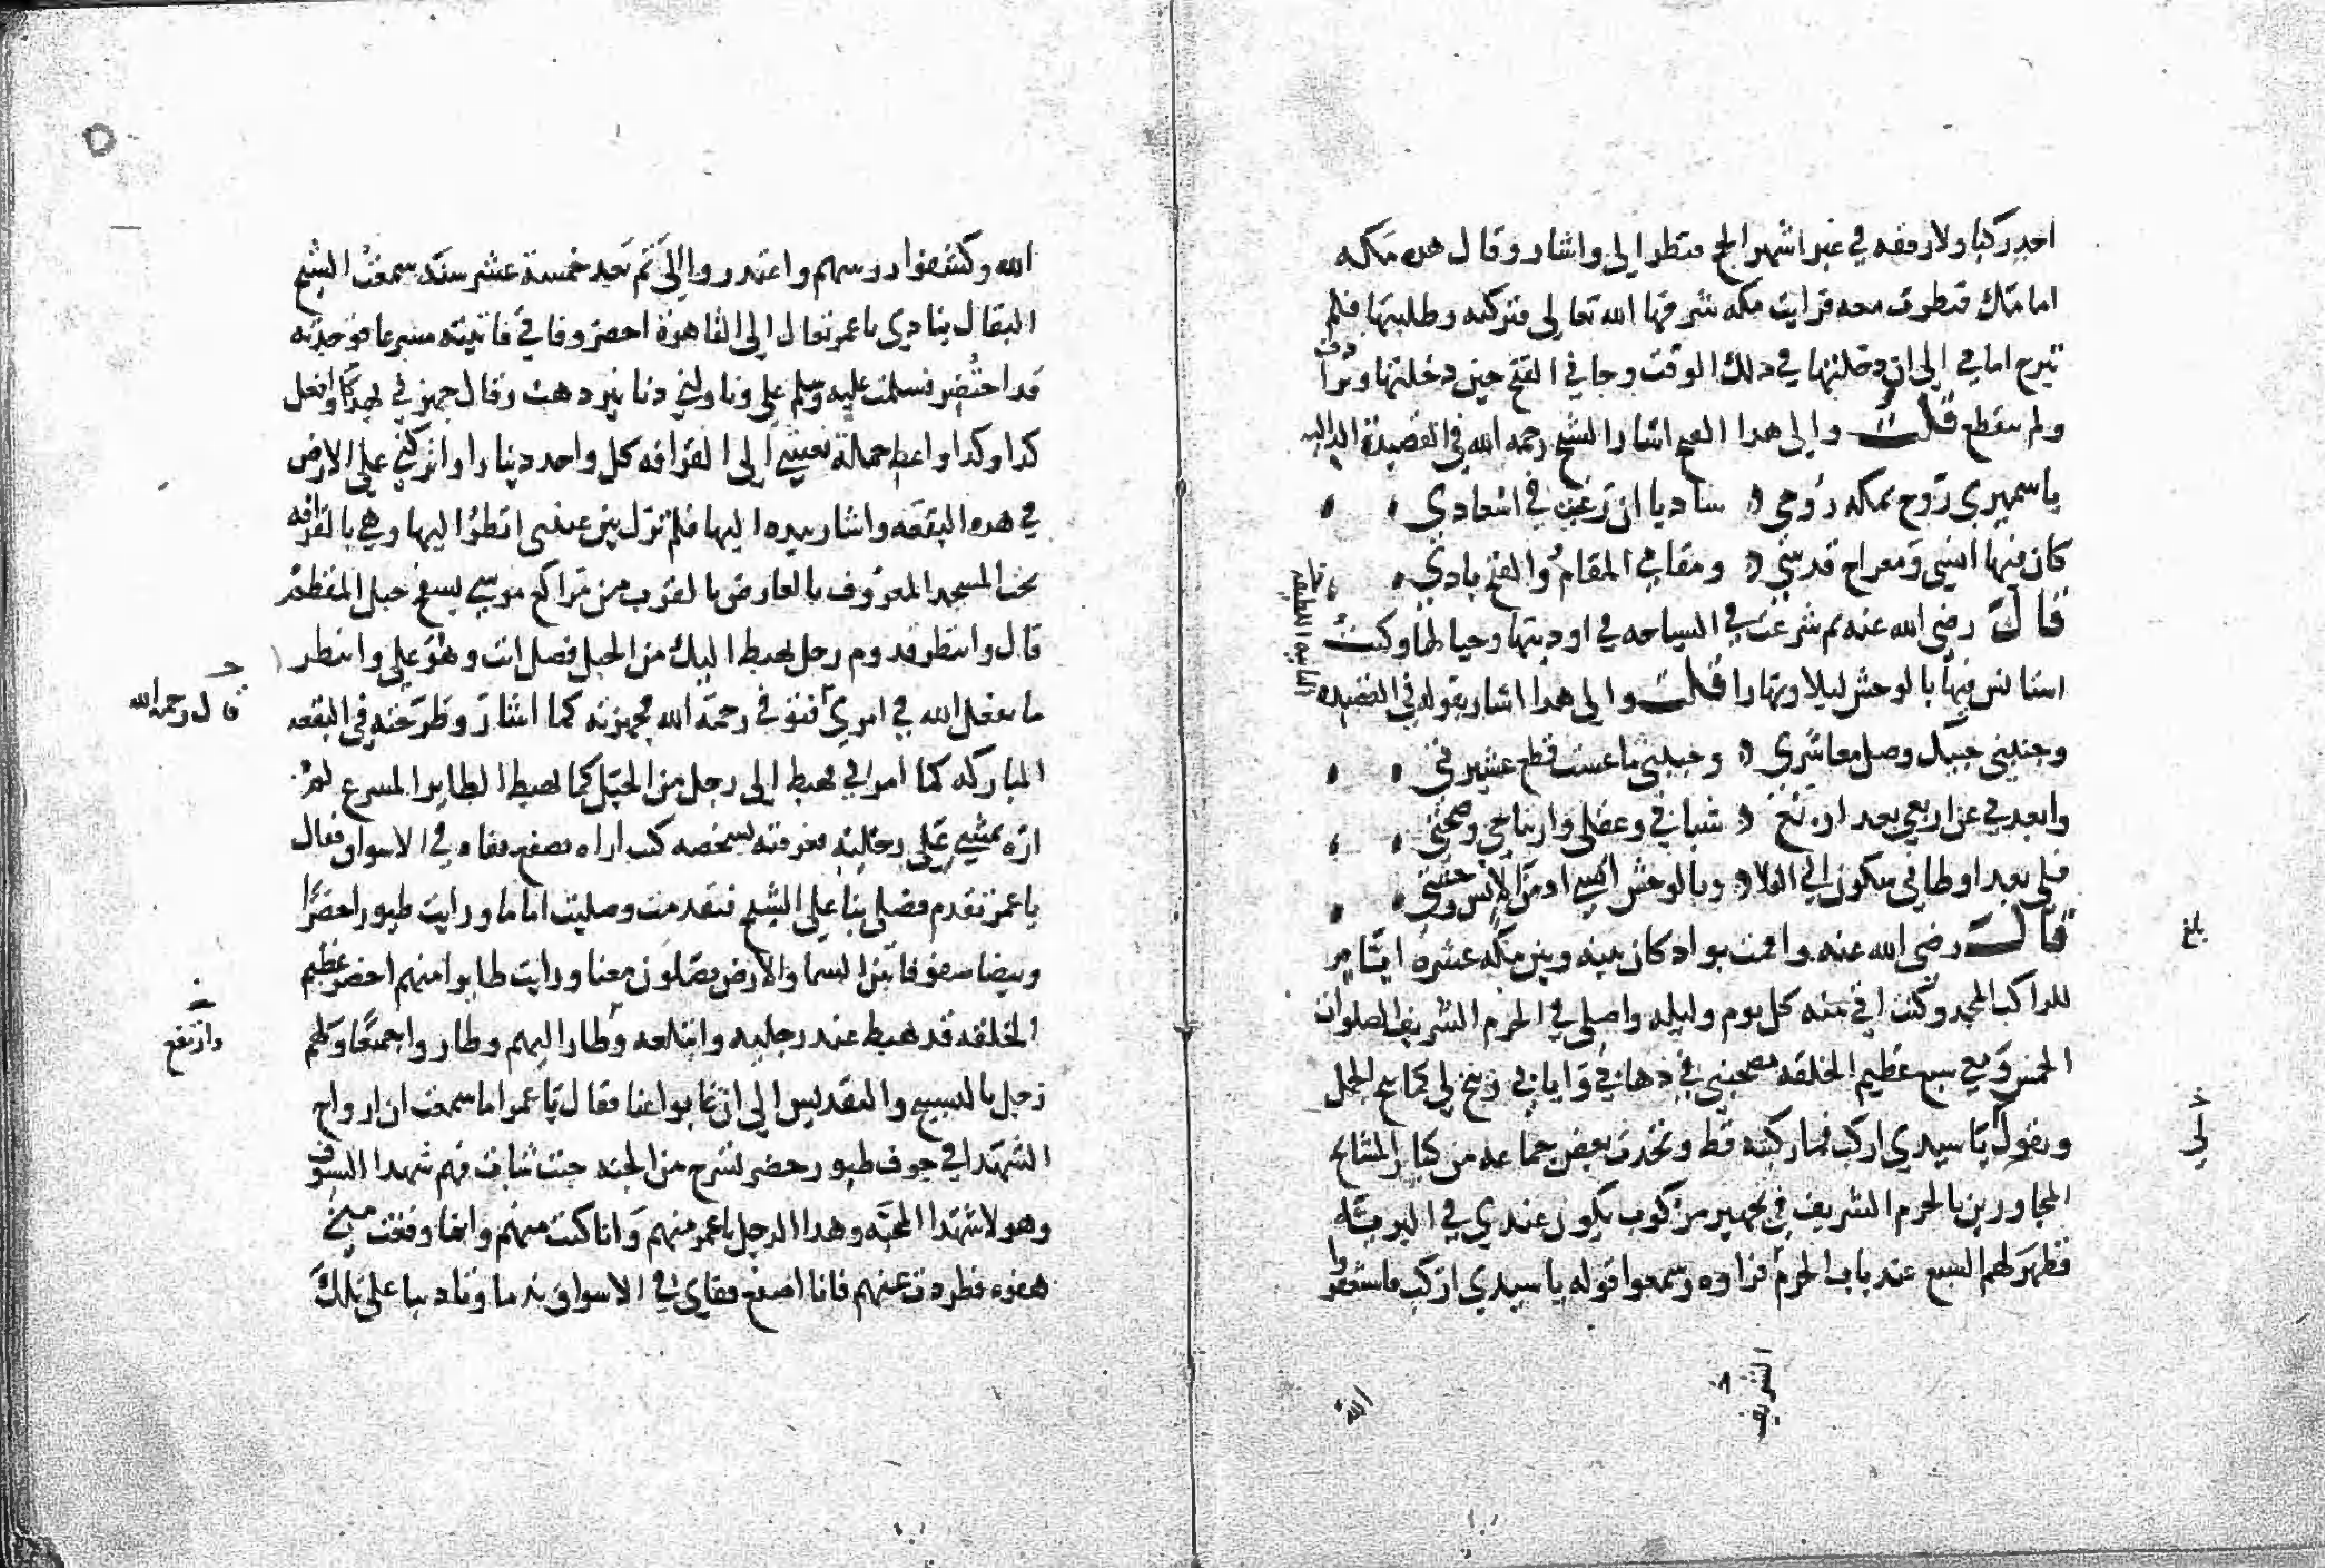 احد ركبا ولا رفقه في غير اشهر الحج فنظر الي واشار وقال هذه مكه
امامك فنظرت معه فرايت مكه شرفها الله تعالى فتركته وطلبتها فلم
تبرح امامي الى ان دخلتها في ذلك الوقت وجاني الفتح حين دخلتها وترادف
ولم ينقطع قلت والى هذا الفتح اشار الشيخ رحمه الله في القصيدة الداليه
يا سميري روح بمكه روحي شاديا ان رغبت في اسعادي
كان فيها انسي ومعراج قدسي ومقامي المقام والفتح بادي
قال رضي الله عنه ثم شرعت في السياحه في اوديتها وجبالها وكنت
استانس فيها بالوحش ليلا ونهارا قلت والى هذا اشار بقوله في القصيده
التاييه اللطيفه
وجنبني حبيك وصل معاشري وحببني ما عشت قطع عشيرتي
وابعدني عن اربعي بعد اربع شبابي وعقلي وارتياحي وصحتي
فلي بعد اوطاني سكون الى الفلا وبالوحش انسي اذ من الانس وحشتي
قال رضي الله عنه واقمت بواد كان بينه وبين مكه عشرة ايام
للراكب المجد وكنت اتي منه كل يوم وليله واصلي في الحرم الشريف الصلوات
الخمس ومعي سبع عظيم الخلقه يصحبني في ذهابي وايابي وينخ لي كما ينخ الجمل
ويقول يا سيدي اركب فما ركبته قط وتحدث بعض جماعه من كبار المشايخ
المجاورين بالحرم الشريف في تجهيز مركوب يكون عندي في البريه
فظهر لهم السبع عند باب الحرم فراوه وسمعوا قوله يا سيدي اركب فاستغفروا
بلغ
الشريف
الله
الله وكشفوا روسهم واعتذروا الي ثم بعد خمسة عشر سنه سمعت الشيخ
البقال ينادي يا عمر تعال الى القاهرة احضر وفاتي فاتيته مسرعا فوجدته
قد احتضر فسلمت عليه وسلم علي وناولني دنانير ذهب وقال جهزني بهذا وافعل
كذا وكذا واعط حملة نعشي الى القرافه كل واحد دينارا واتركني على الارض
في هذه البقعه واشار بيده اليها فلم تزل بين عيني انظر اليها وهي بالقرافه
تحت المسجد المعروف بالعارض بالقرب من مراكع موسى بسفح جبل المقطم
قال وانتظر قدوم رجل يهبط اليك من الجبل فصل انت وهو علي وانتظر
ما يفعل الله في امري فتوفي رحمه الله فجهزته كما اشار وطرحته في البقعه
قال رحمه الله
المباركه كما امرني فهبط الي رجل من الجبل كما يهبط الطاير المسرع لم
اره يمشي على رجليه فعرفته بشخصه كنت اراه يصفع قفاه في الاسواق فقال
يا عمر تقدم فصلي بنا على الشيخ فتقدمت وصليت اماما ورايت طيورا خضرا
وبيضا صفوفا بين السما والارض يصلون معنا ورايت طايرا منهم اخضر عظيم
الخلقه قد هبط عند رجليه وابتلعه وطار اليهم وطاروا جميعا ولهم
وارتفع
زجل بالتسبيح والتقديس الى ان غابوا عنا فقال يا عمر اما سمعت ان ارواح
الشهدا في جوف طيور خضر تسرح من الجنه حيث شات هم شهدا السيوف
وهولا شهدا المحبه وهذا الرجل يا عمر منهم وانا كنت منهم وانما وقعت مني
هفوه فطردت عنهم فانا اصفع قفاي في الاسواق ندما وتاديبا على تلك